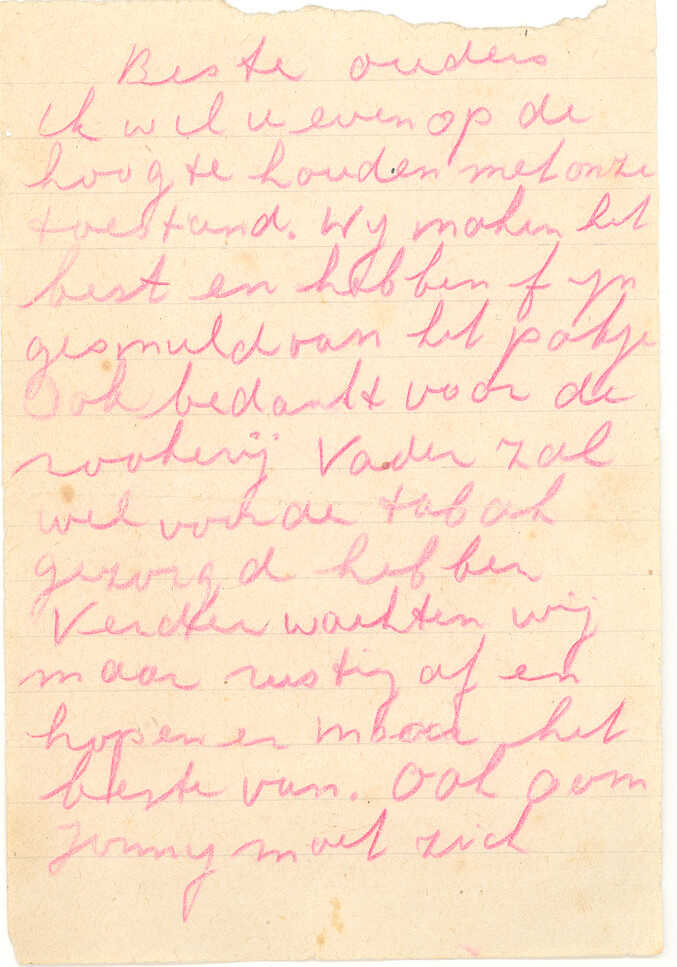 Beste ouders
Ik wil u even op de
hoogte houden met onze
toestand. Wy maken het
best en hebben fyn
gesmuld van het pakje
Ook bedankt voor de
rookerij Vader zal
wel voor de tabak
gezorgd hebben
Verder wachten wij
maar rustig af en
hopen er maar het
beste van. Ook oom
moet zich